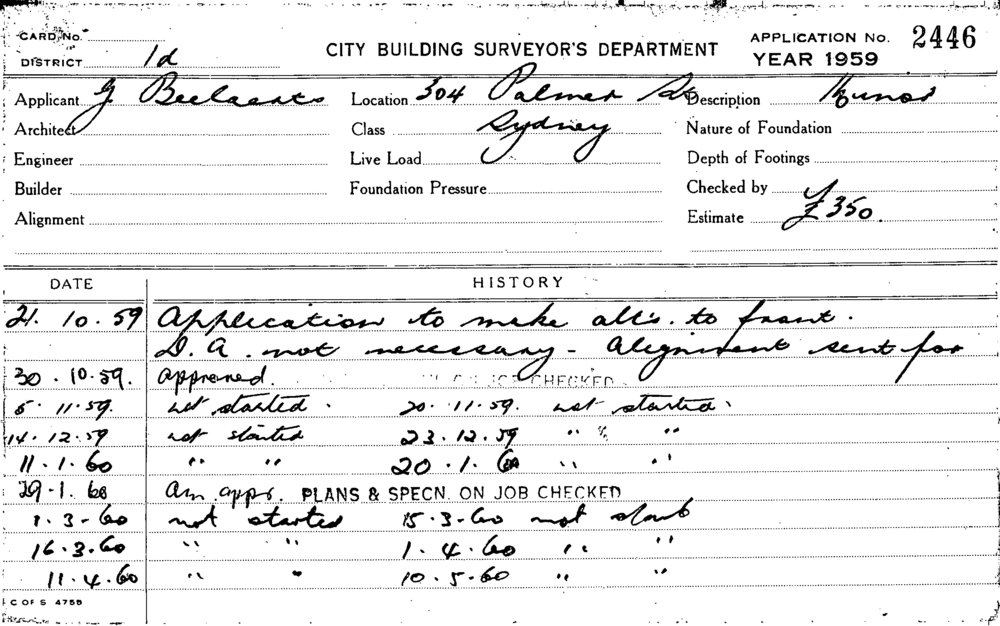 CARD No.
DISTRICT 1d
CITY BUILDING SURVEYOR'S DEPARTMENT
APPLICATION No. 2446
YEAR 1959
Applicant J. Beelaerts Location 304 Palmer St Description Minor
Architect Class Sydney Nature of Foundation
Engineer Live Load Depth of Footings
Builder Foundation Pressure Checked by
Alignment Estimate £350.
DATE HISTORY
21. 10. 59 Application to make alt's. to front.
D.A. not necessary - Alignment sent for
30. 10. 59. approved. JOB CHECKED
5. 11. 59. not started. 20. 11. 59. not started.
14. 12. 59 not started 23. 12. 59 " "
11. 1. 60 " " 20. 1. 60 " "
29. 1. 60 Am. appr. PLANS & SPECN. ON JOB CHECKED
1. 3 - 60 not started 15. 3 - 60 not start
16. 3. 60 " " 1. 4. 60 " "
11. 4. 60 " " 10. 5 - 60 " "
C OF S 4755